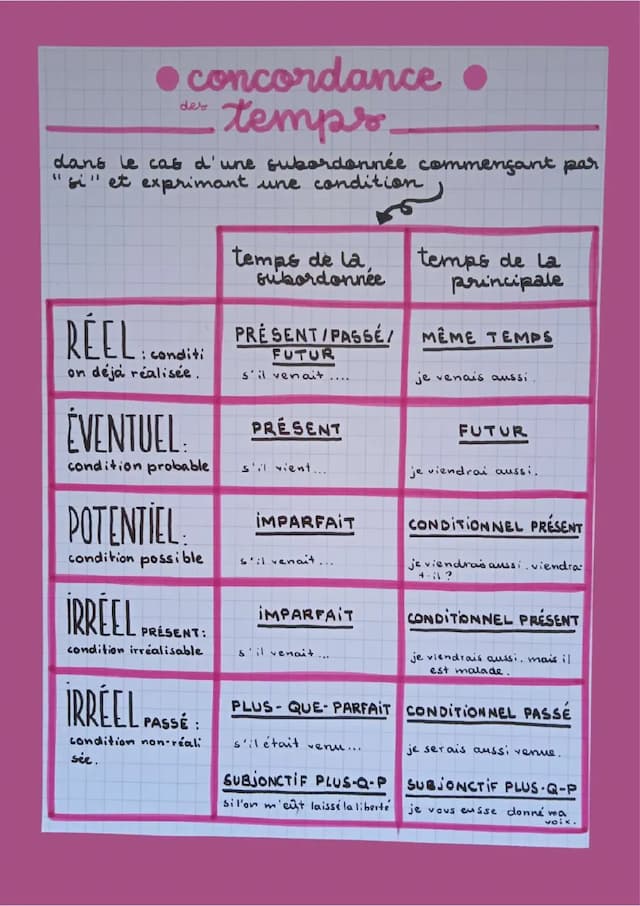 concordance
des temps
dans le cas d'une subordonnée commençant par
"si" et exprimant une condition
temps de la
subordonnée
temps de la
principale
RÉEL : conditi
on déjà réalisée.
PRÉSENT/PASSÉ/
FUTUR
s'il venait ....
MÊME TEMPS
je venais aussi.
ÉVENTUEL:
condition probable
PRÉSENT
s'il vient...
FUTUR
je viendrai aussi.
POTENTIEL:
condition possible
IMPARFAIT
s'il venait...
CONDITIONNEL PRÉSENT
je viendrais aussi. viendra-
t-il?
IRRÉEL PRÉSENT:
condition irréalisable
IMPARFAIT
s'il venait...
CONDITIONNEL PRÉSENT
je viendrais aussi. mais il
est malade.
IRRÉEL PASSÉ :
condition non-réali
sée.
PLUS-QUE-PARFAIT
s'il était venu...
CONDITIONNEL PASSÉ
je serais aussi venue.
SUBJONCTIF PLUS-Q-P
si l'on m'eût laissé la liberté
SUBJONCTIF PLUS-Q-P
je vous eusse donné ma
voix.